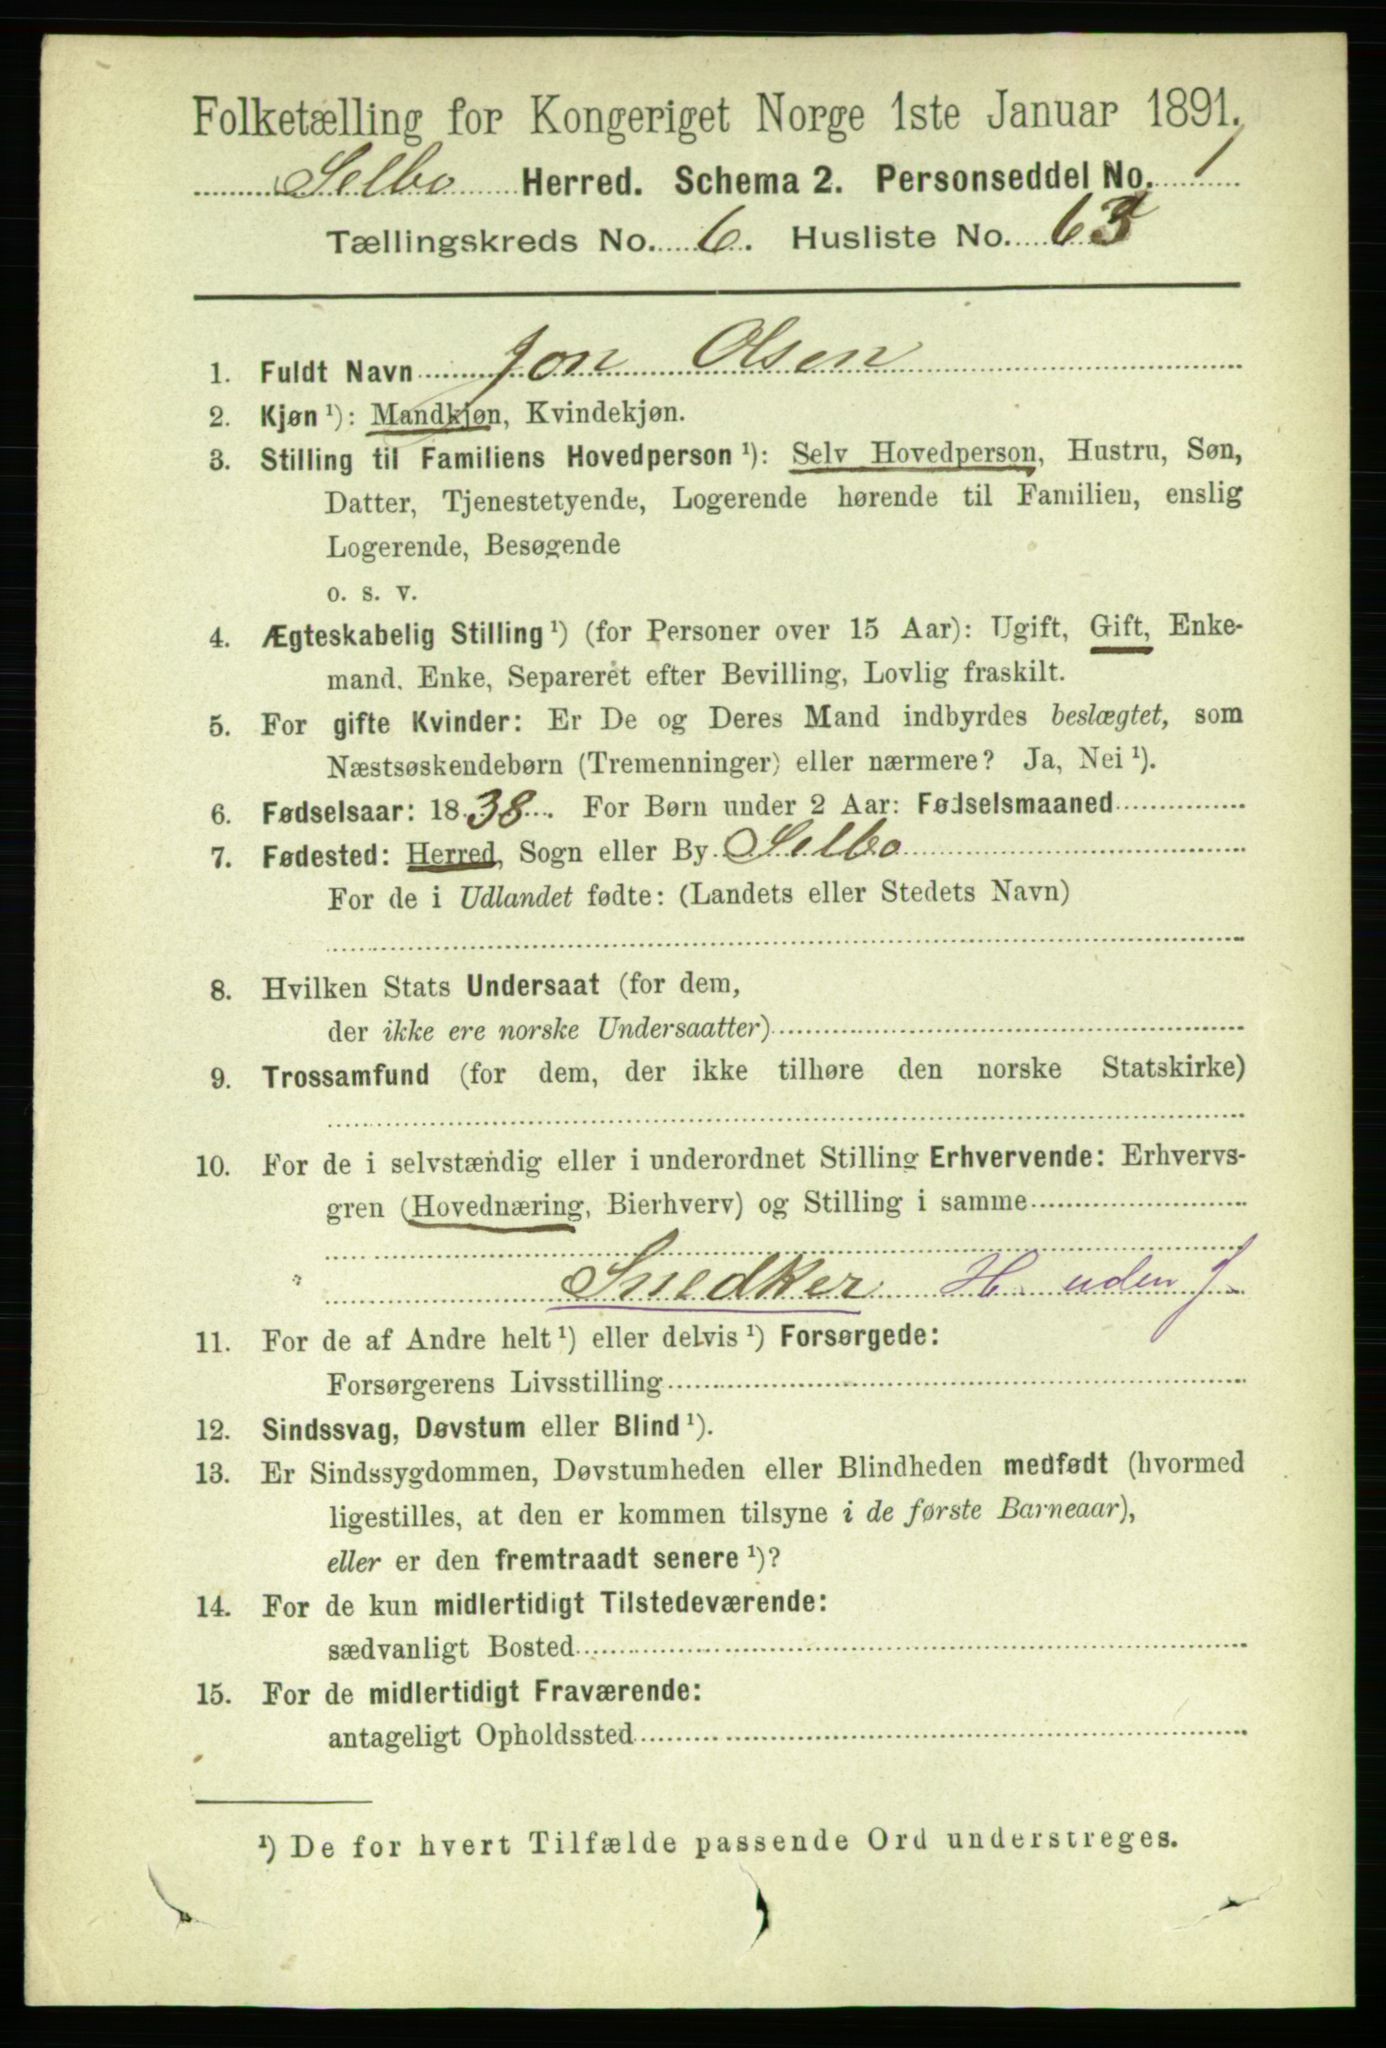 Folketælling for Kongeriget Norge 1ste Januar 1891.
Selbo Herred. Schema 2. Personseddel No. 1
Tællingskreds No. 6. Husliste No. 63
1. Fuldt Navn Jon Olsen
2. Kjøn ¹): Mandkjøn, Kvindekjøn.
3. Stilling til Familiens Hovedperson ¹): Selv Hovedperson, Hustru, Søn,
Datter, Tjenestetyende, Logerende hørende til Familien, enslig
Logerende, Besøgende
o. s. v.
4. Ægteskabelig Stilling ¹) (for Personer over 15 Aar): Ugift, Gift, Enke-
mand, Enke, Separeret efter Bevilling, Lovlig fraskilt.
5. For gifte Kvinder: Er De og Deres Mand indbyrdes beslægtet, som
Næstsøskendebørn (Tremenninger) eller nærmere? Ja, Nei ¹).
6. Fødselsaar: 1838. For Børn under 2 Aar: Fødselsmaaned
7. Fødested: Herred, Sogn eller By Selbo
For de i Udlandet fødte: (Landets eller Stedets Navn)
8. Hvilken Stats Undersaat (for dem,
der ikke ere norske Undersaatter)
9. Trossamfund (for dem, der ikke tilhøre den norske Statskirke)
10. For de i selvstændig eller i underordnet Stilling Erhvervende: Erhvervs-
gren (Hovednæring, Bierhverv) og Stilling i samme
Snedker H. uden J
11. For de af Andre helt ¹) eller delvis ¹) Forsørgede:
Forsørgerens Livsstilling
12. Sindssvag, Døvstum eller Blind ¹).
13. Er Sindssygdommen, Døvstumheden eller Blindheden medfødt (hvormed
ligestilles, at den er kommen tilsyne i de første Barneaar),
eller er den fremtraadt senere ¹)?
14. For de kun midlertidigt Tilstedeværende:
sædvanligt Bosted
15. For de midlertidigt Fraværende:
antageligt Opholdssted
¹) De for hvert Tilfælde passende Ord understreges.